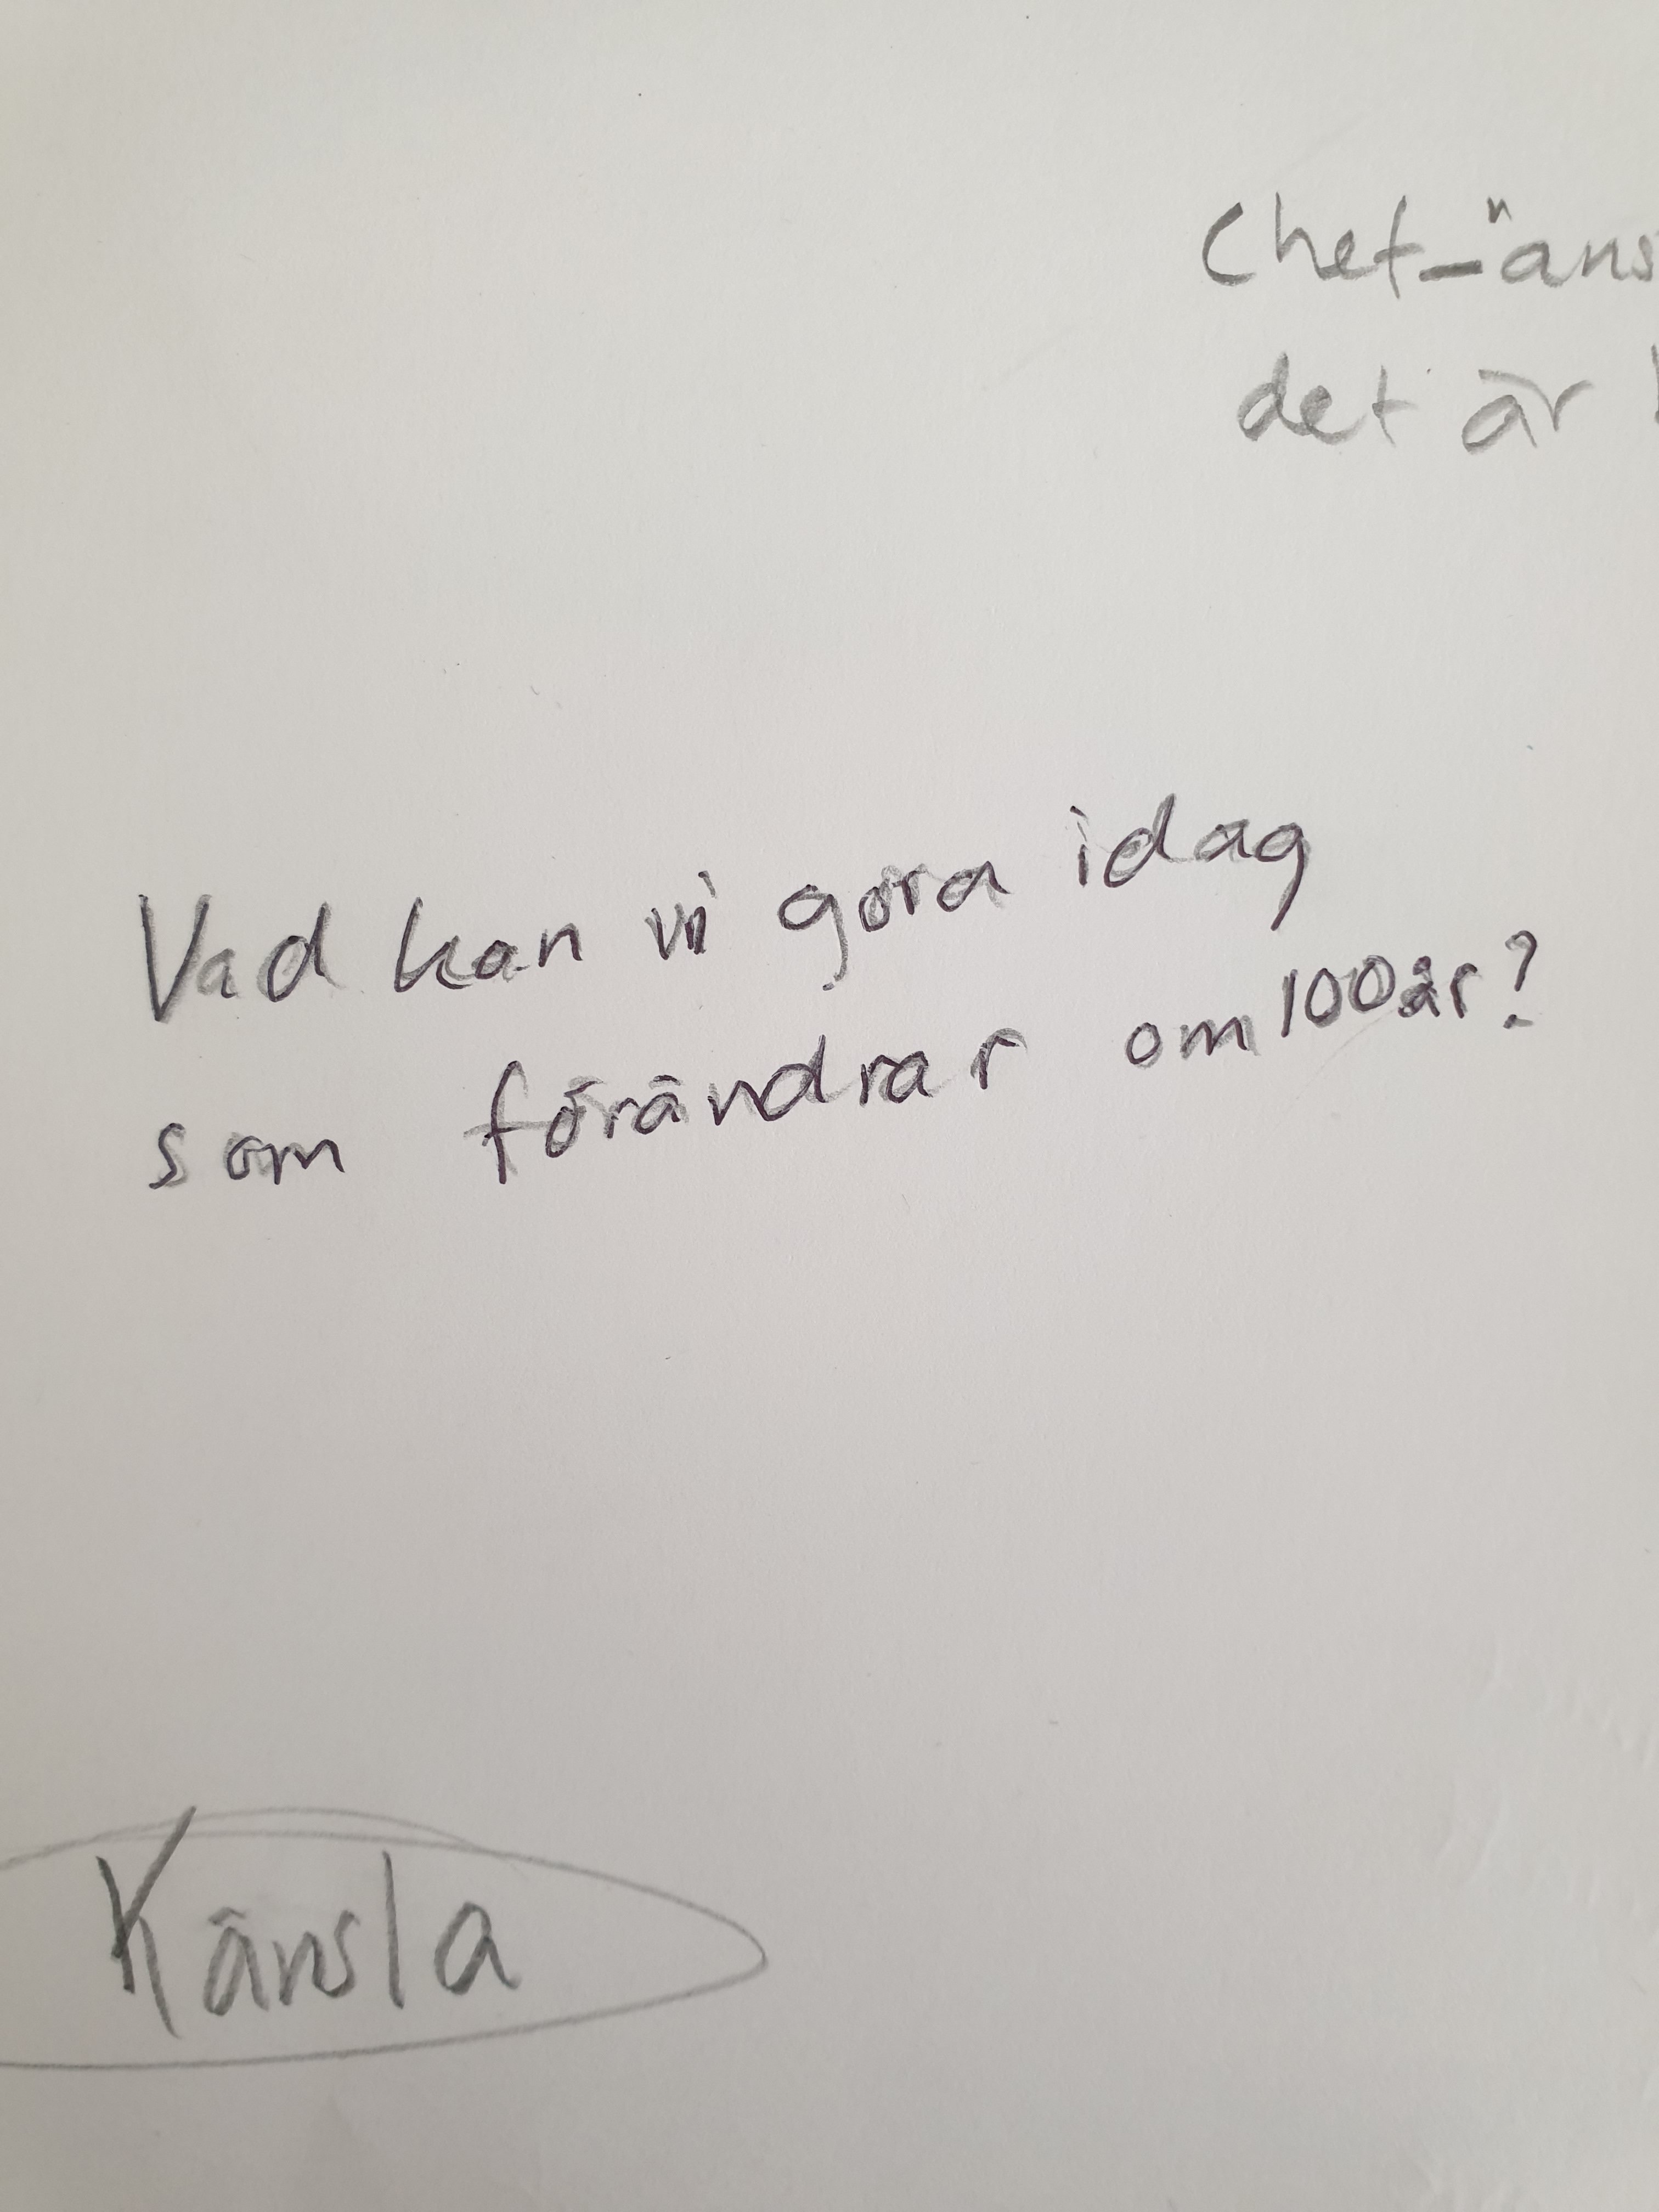 Chef-"ans
det är
Vad kan vi göra idag
som förändrar om 100 år?
Känsla